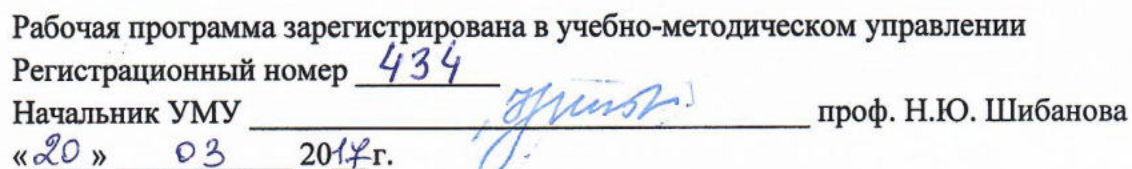 Рабочая программа зарегистрирована в учебно-методическом управлении
Регистрационный номер 434
Начальник УМУ проф. Н.Ю. Шибанова
«20» 03 2017г.